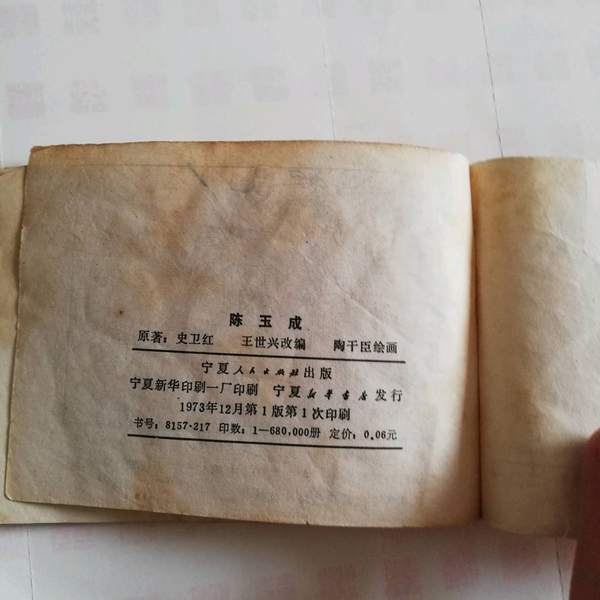 陈玉成
原著：史卫红 王世兴改编 陶干臣绘画
宁夏人民出版社出版
宁夏新华印刷一厂印刷 宁夏新华书店发行
1973年12月第1版第1次印刷
书号：8157·217 印数：1—680,000册 定价：0.06元